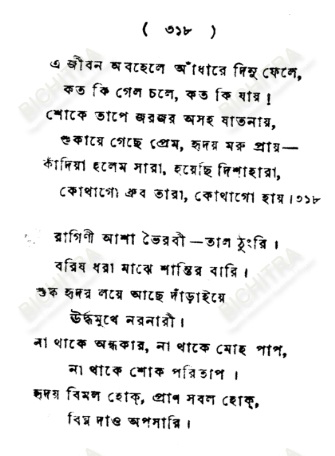 ( ৩১৮ )
এ জীবন অবহেলে আঁধারে দিনু ফেলে,
কত কি গেল চলে, কত কি যায়।
শোকে তাপে জরজর অসহ যাতনায়,
শুকায়ে গেছে প্রেম, হৃদয় মরু প্রায়—
কাঁদিয়া হলেম সারা, হয়েছি দিশাহারা,
কোথাগো ধ্রুব তারা, কোথাগো হায়।৩১৮
রাগিণী আশা ভৈরবী—তাল ঠুংরি।
বরিষ ধরা মাঝে শান্তির বারি।
শুষ্ক হৃদয় লয়ে আছে দাঁড়াইয়ে
ঊর্দ্ধমুখে নরনারী।
না থাকে অন্ধকার, না থাকে মোহ পাপ,
না থাকে শোক পরিতাপ।
হৃদয় বিমল হোক্, প্রাণ সবল হোক্,
বিঘ্ন দাও অপসারি।
BICHITRA
BICHITRA
BICHITRA
BICHITRA